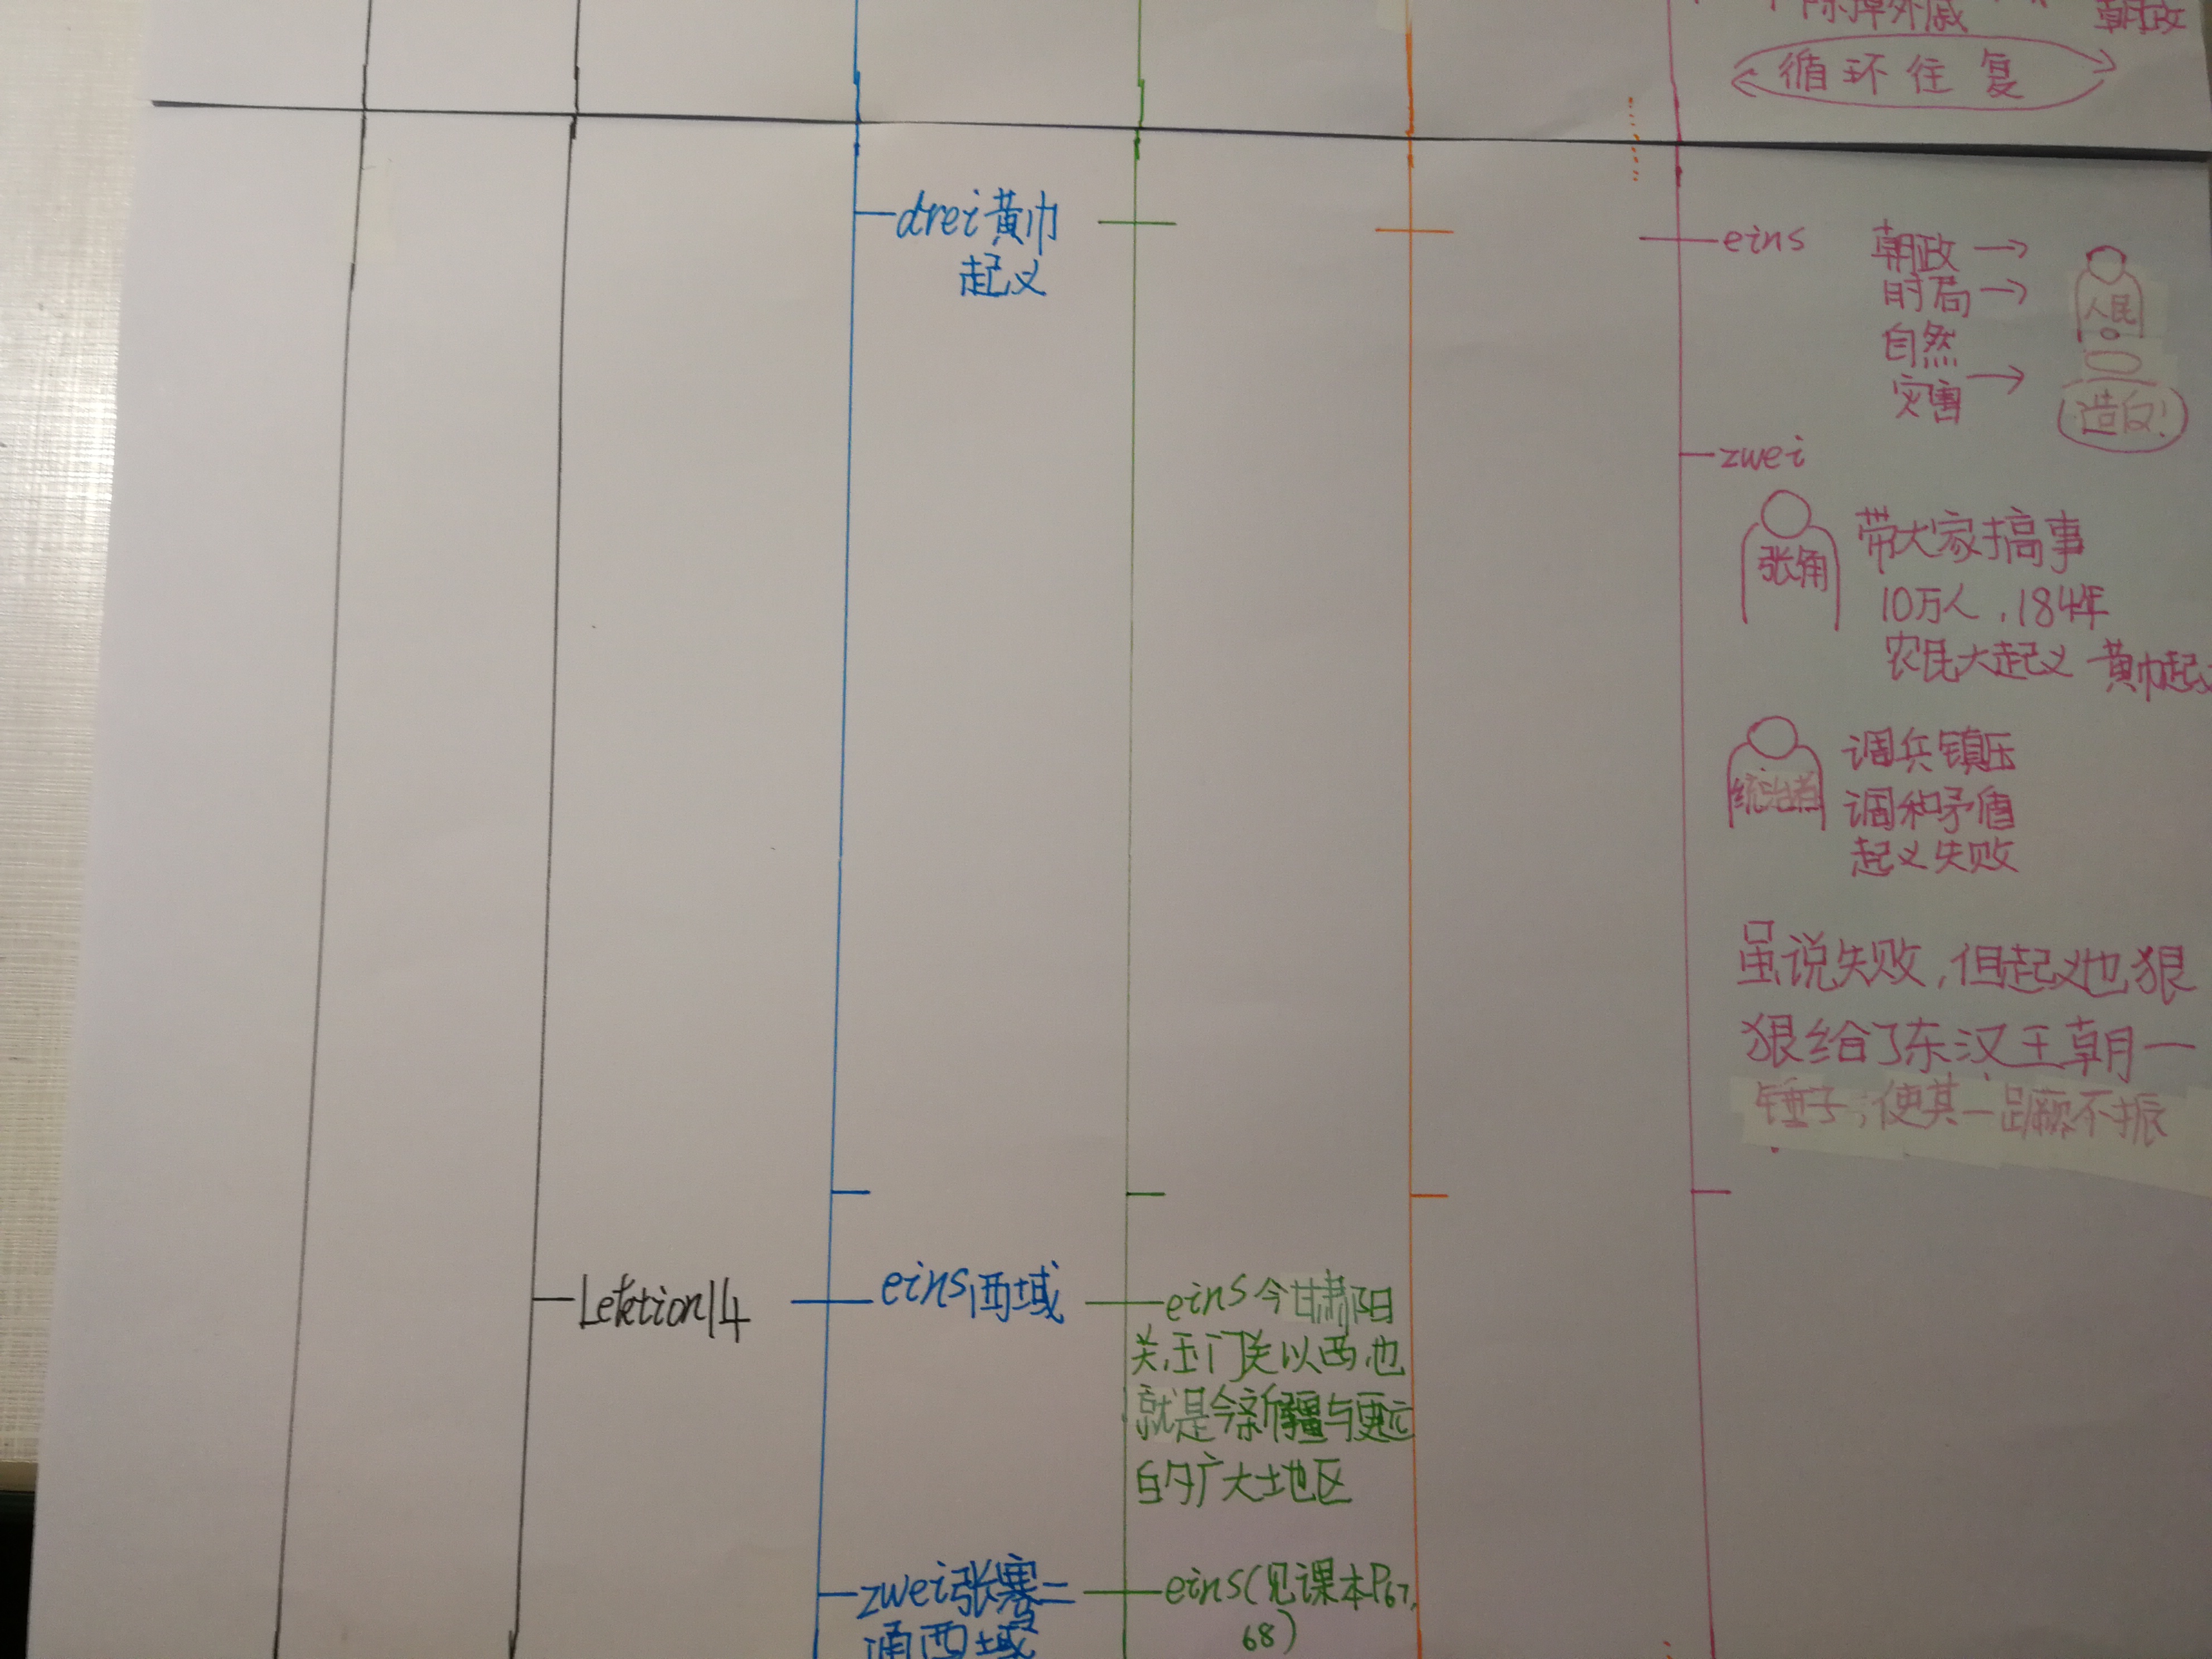 除掉外戚
朝政
循环往复
drei黄巾
起义
eins
朝政→
时局→
自然
灾害→
人民
造反!
zwei
张角
带大家搞事
10万人,184年
农民大起义 黄巾起义
统治者
调兵镇压
调和矛盾
起义失败
虽说失败,但起义也狠
狠给了东汉王朝一
锤子,使其一蹶不振
Lektion14
eins西域
eins今甘肃阳
关,玉门关以西,也
就是今新疆与更远
的广大地区
zwei张骞二
通西域
eins(见课本P67,
68)